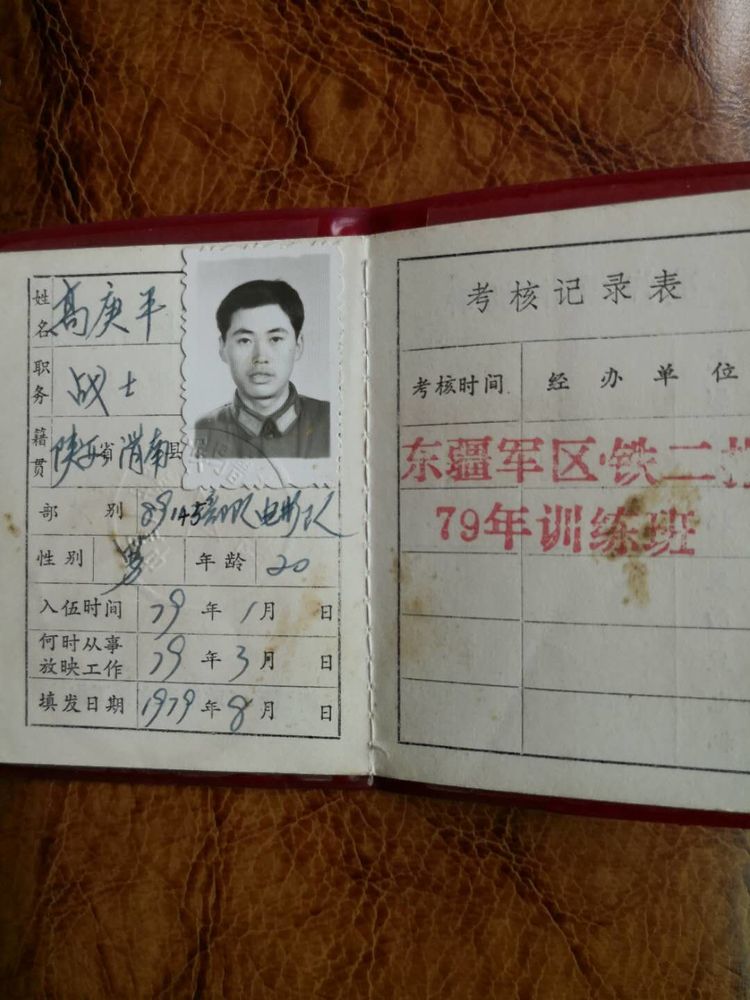 姓名 高庚平
职务 战士
籍贯 陕西省渭南县
部别 89145部队电影队
性别 男 年龄 20
入伍时间 79年1月 日
何时从事放映工作 79年3月 日
填发日期 1979年8月 日
考核记录表
考核时间 经办单位
东疆军区·铁二
79年训练班